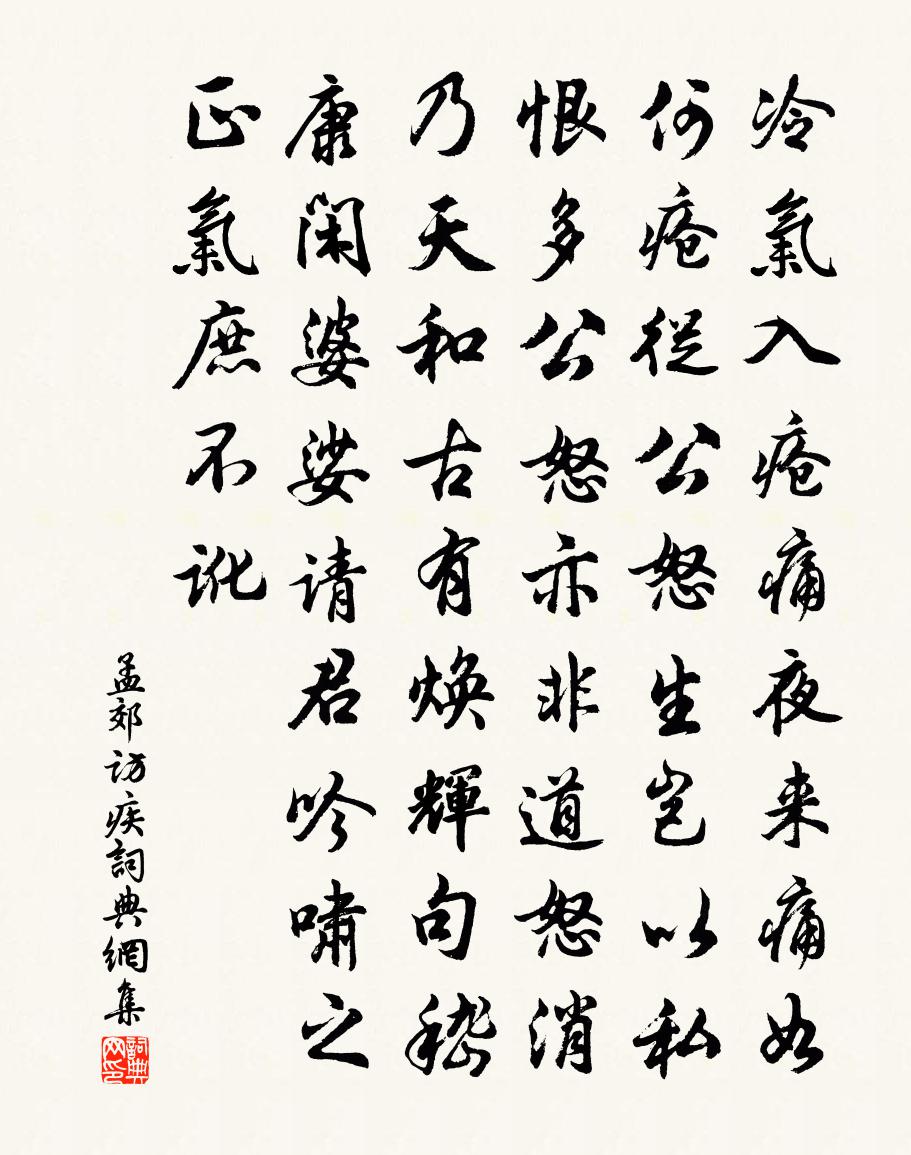 冷氣入疮痛夜来痛如
何疮從公怒生岂以私
恨多公怒亦非道怒消
乃天和古有焕輝句嵇
康闲婆娑请君吟啸之
正氣庶不訛
孟郊访疾詞典網集
詞典网印